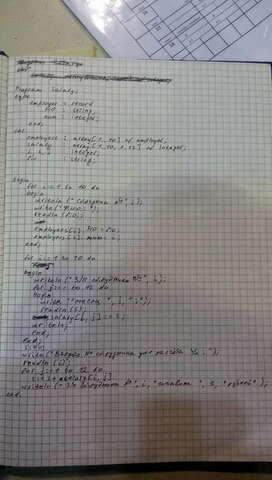 Program Salary;
type
employee = record
FIO : string;
num : integer;
end;
var
employees : array[1..10] of employee;
salary : array[1..10, 1..12] of integer;
i, j, s : integer;
fio : string;
begin
for i:=1 to 10 do
begin
writeln ("Сотрудник №", i);
write("ФИО: ");
readln (fio);
employees[i].FIO = fio;
employees[i].num = i;
end;
for i:=1 to 10 do
begin
writeln ("З/п сотрудника №", i);
for j:= 1 to 12 do
begin
write ("месяц ", j, ":");
readln(s);
salary[i, j] := s;
writeln;
end;
end;
s:=0;
write("Введите № сотрудника для расчёта з/п: ");
readln (i);
for j:=1 to 12 do
s:=s+salary[i, j]
writeln ("З/п сотрудника №", i, "составила ", s, "рублей");
end.